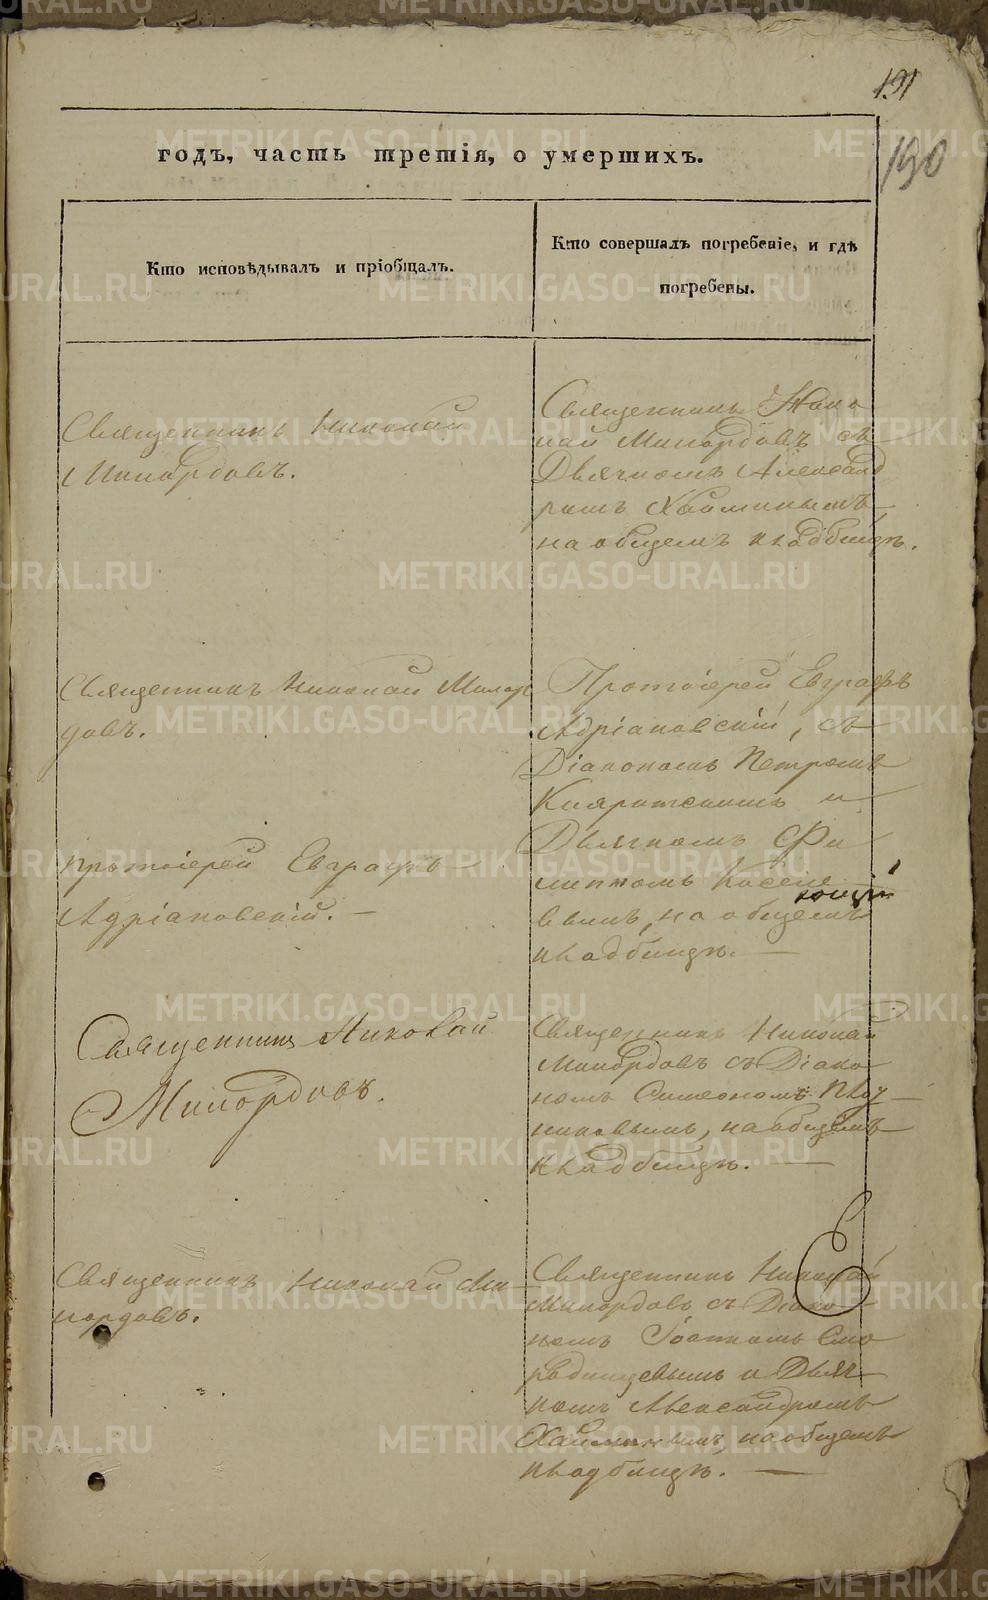 191
190
годъ, часть третія, о умершихъ.
Кто исповѣдывалъ и пріобщалъ.
Кто совершалъ погребеніе, и гдѣ
погребены.
Священникъ Николай
Милордовъ.
Священникъ Нико
лай Милордовъ съ
Дьячкомъ Александ
ромъ
на общемъ кладбищѣ.
Священникъ Николай Милор
довъ.
Протоіерей Евграфъ
Адріановскій, съ
Діакономъ Петромъ
и
Дьячкомъ Фи
липпомъ
вымъ, на общемъ
кладбищѣ.
Протоіерей Евграфъ
Адріановскій.
Священникъ Николай
Милордовъ.
Священникъ Николай
Милордовъ съ Діако
номъ Симеономъ Плот
никовымъ, на общемъ
кладбищѣ.
Священникъ Николай Ми
лордовъ.
Священникъ Николай
Милордовъ съ Діако
номъ Іоанномъ Смо
родинцевымъ и Дьяч
комъ Александромъ
на общемъ
кладбищѣ.
METRIKI.GASO-URAL.RU